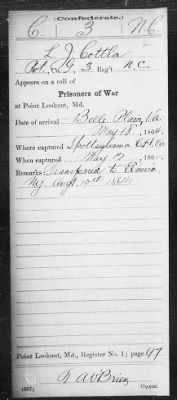 (Confederate.)
C 3 N.C.
L J Cottla
Pvt, Co. G, 3 Reg't N.C.
Appears on a roll of
Prisoners of War
at Point Lookout, Md.
Date of arrival Belle Plain, Va
May 18, 1864.
Where captured Spottsylvania C.H. Va
When captured May 12, 186
Remarks Transferred to Elmira
N.Y. Augt 10th 1864.
Point Lookout, Md., Register No. 1; page 47
R A O'Brien
Copyist.